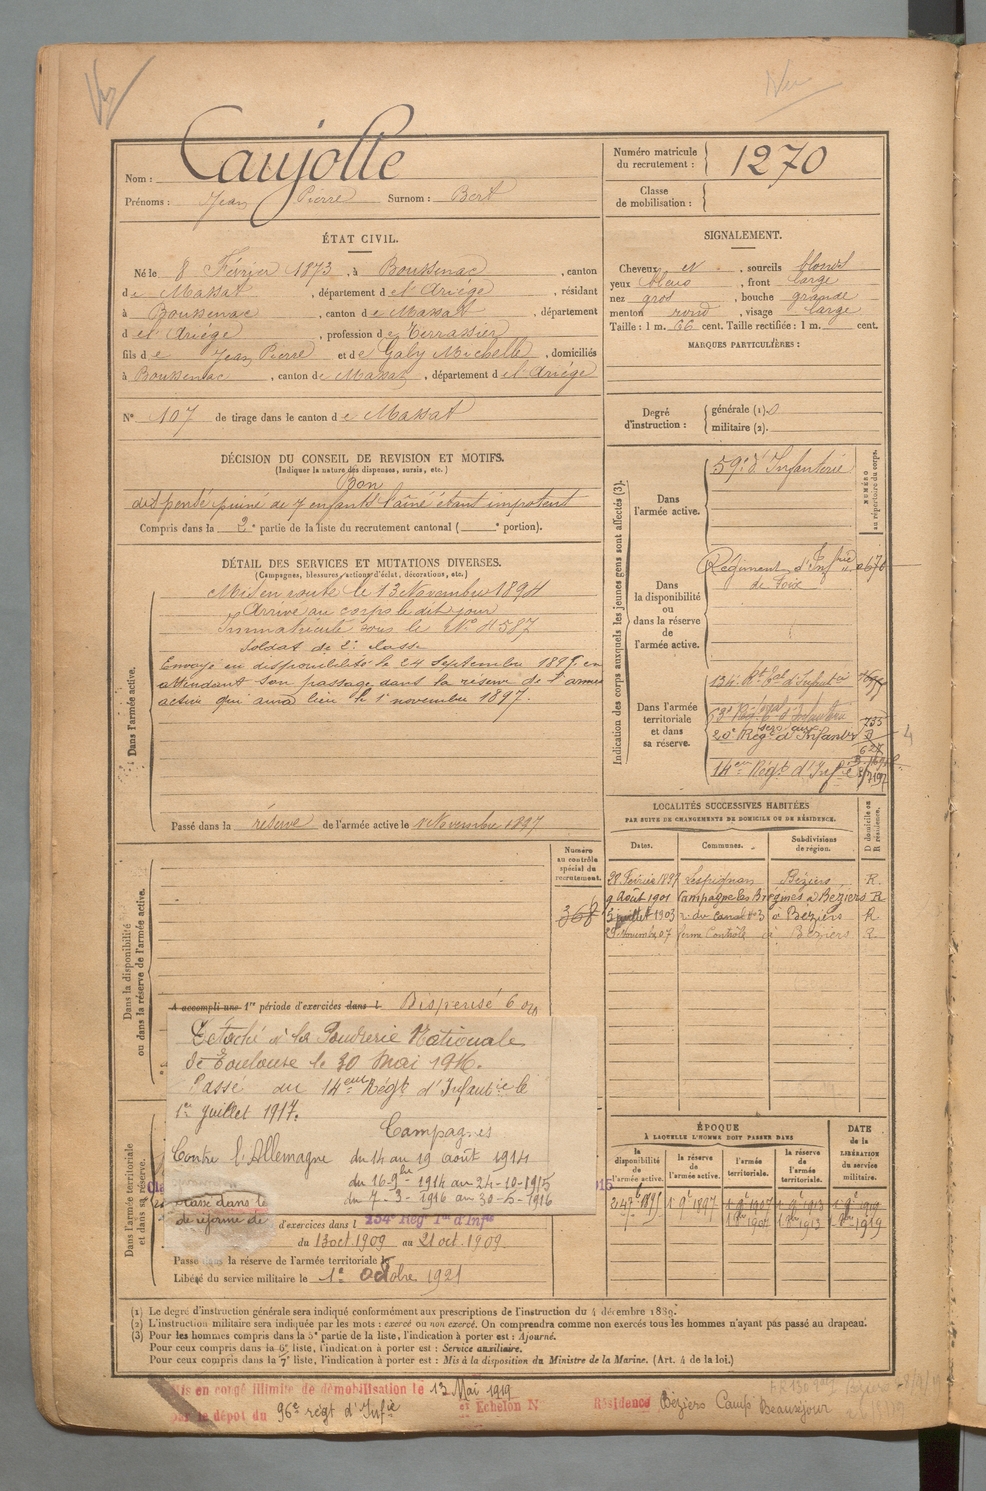 Nom : Caujolle
Prénoms : Jean Pierre Surnom : Bert
Numéro matricule du recrutement : 1270
Classe de mobilisation :
ÉTAT CIVIL.
Né le 8 Février 1873, à Boussenac, canton
de Massat, département de l'Ariège, résidant
à Boussenac, canton de Massat, département
de l'Ariège, profession de Terrassier
fils de Jean Pierre et de Galy Michelle, domiciliés
à Boussenac, canton de Massat, département de l'Ariège
N° 107 de tirage dans le canton de Massat
SIGNALEMENT.
Cheveux et, sourcils blonds
yeux bleus, front large
nez gros, bouche grande
menton rond, visage large
Taille : 1 m. 66 cent. Taille rectifiée : 1 m. cent.
MARQUES PARTICULIÈRES :
Degré d'instruction : générale (1) 0
militaire (2).
DÉCISION DU CONSEIL DE REVISION ET MOTIFS.
(Indiquer la nature des dispenses, sursis, etc.)
Bon
dispensé puiné de 7 enfants l'aîné étant impotent
Compris dans la 2e partie de la liste du recrutement cantonal ( e portion).
DÉTAIL DES SERVICES ET MUTATIONS DIVERSES.
(Campagnes, blessures, actions d'éclat, décorations, etc.)
Dans l'armée active.
Mis en route le 13 Novembre 1894
Arrivé au corps le dit jour
Immatriculé sous le N° 4587
Soldat de 2e classe
Envoyé en disponibilité le 24 Septembre 1895 en
attendant son passage dans la réserve de l'armée
active qui aura lieu le 1er novembre 1897.
Passé dans la réserve de l'armée active le 1 Novembre 1897
Indication des corps auxquels les jeunes gens sont affectés (3).
NUMÉRO au répertoire du corps.
Dans l'armée active.
59e d'Infanterie
Dans la disponibilité ou dans la réserve de l'armée active.
Régiment d'Infrie
de Foix
Dans l'armée territoriale et dans sa réserve.
134e Rt Tal d'Infrie
20e Régt d'Infanterie
735
627
14eme Régt d'Infie
LOCALITÉS SUCCESSIVES HABITÉES
PAR SUITE DE CHANGEMENTS DE DOMICILE OU DE RÉSIDENCE.
Dates. Communes. Subdivisions de région. D domicile ou R résidence.
28 Février 1897 Lespignan Béziers R.
9 Août 1901 Campagne les Brégines à Béziers R
juillet 1903 r. du canal n° 3 à Béziers R.
Novembre 07 ferme Contrôle à Béziers R.
Dans la disponibilité ou dans la réserve de l'armée active.
Numéro au contrôle spécial du recrutement.
368
A accompli une 1re période d'exercices dans l Dispensé
Détaché à la Poudrerie Nationale
de Toulouse le 30 Mai 1916.
Passé au 14eme Régt d'Infantie le
1er Juillet 1917.
Campagnes
Contre l'Allemagne du 14 au 19 août 1914
du 16-9bre 1914 au 24-10-1915
du 7-3-1916 au 30-5-1916
Dans l'armée territoriale et dans sa réserve.
classe dans le
de réforme de
d'exercices dans l 134e Régt Tal d'Infie
du 13 oct 1909 au 21 oct. 1909.
Passé dans la réserve de l'armée territoriale le
Libéré du service militaire le 1er Octobre 1921
ÉPOQUE
À LAQUELLE L'HOMME DOIT PASSER DANS
la disponibilité de l'armée active. la réserve de l'armée active. l'armée territoriale. la réserve de l'armée territoriale.
DATE de la LIBÉRATION du service militaire.
24 7bre 1895 1 9bre 1897 1 9bre 1907 1 9bre 1913 1 9bre 1919
1 8bre 1907 1 8bre 1913 1 8bre 1919
(1) Le degré d'instruction générale sera indiqué conformément aux prescriptions de l'instruction du 4 décembre 1889.
(2) L'instruction militaire sera indiquée par les mots : exercé ou non exercé. On comprendra comme non exercés tous les hommes n'ayant pas passé au drapeau.
(3) Pour les hommes compris dans la 5e partie de la liste, l'indication à porter est : Ajourné.
Pour ceux compris dans la 6e liste, l'indication à porter est : Service auxiliaire.
Pour ceux compris dans la 7e liste, l'indication à porter est : Mis à la disposition du Ministre de la Marine. (Art. 4 de la loi.)
Mis en congé illimité de démobilisation le 13 Mai 1919
par le dépôt du 96e régt d'Infie Echelon N Résidence Béziers Camp Beauséjour